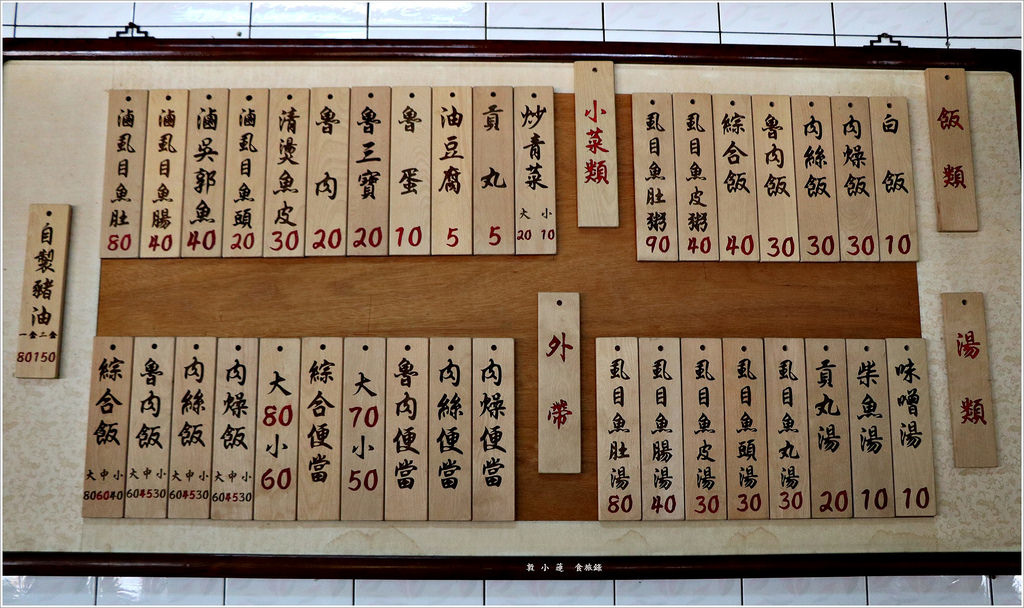 飯類
白飯 10
肉燥飯 30
肉絲飯 30
魯肉飯 30
綜合飯 40
虱目魚皮粥 40
虱目魚肚粥 90
小菜類
炒青菜 大20 小10
貢丸 5
油豆腐 5
魯蛋 10
魯三寶 20
魯肉 20
清燙魚皮 30
滷虱目魚頭 20
滷吳郭魚 40
滷虱目魚腸 40
滷虱目魚肚 80
自製豬油 一盒二盒 80150
湯類
味噌湯 10
柴魚湯 10
貢丸湯 20
虱目魚丸湯 30
虱目魚頭湯 30
虱目魚皮湯 30
虱目魚腸湯 40
虱目魚肚湯 80
外帶
肉燥便當
肉絲便當
魯肉便當
大70小50
綜合便當
大80小60
肉燥飯 大中小 604530
肉絲飯 大中小 604530
魯肉飯 大中小 604530
綜合飯 大中小 806040
敦小蓮 食旅錄